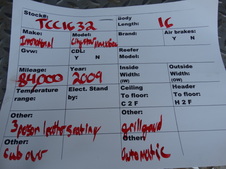 Stock#: TCC1632 Body Length: 16
Make: International Model: Brand: Air brakes: Y N
Gvw: CDL: Y N Reefer Model:
Mileage: 84000 Year: 2009 Inside Width: (IW) Outside Width: (OW)
Temperature range: Elect. Stand by: Ceiling To floor: C 2 F Header To floor: H 2 F
Other: 3 person leather seating Other: grill guard
Other: Cab over Other: automatic